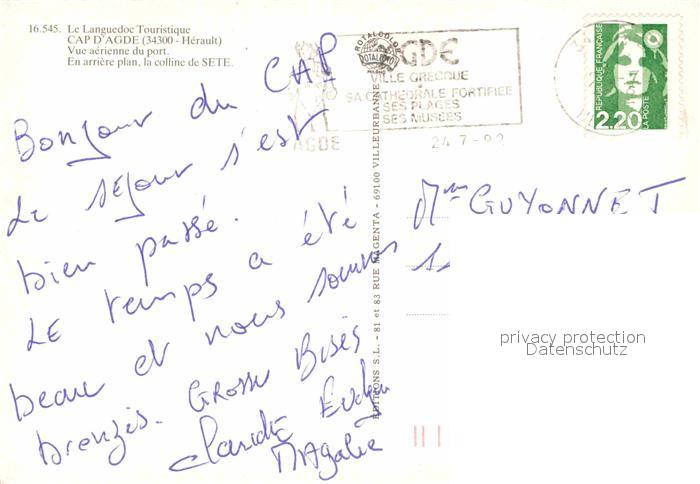 16.545. Le Languedoc Touristique
CAP D'AGDE (34300 - Hérault)
Vue aérienne du port.
En arrière plan, la colline de SETE.
Bonjour du CAP
Le séjour s'est
bien passé.
Le temps a été
beau et nous sommes
bronzés. Grosses Bises
Claude
Magalie
EDITIONS S.L. - 81 et 83 RUE MAGENTA - 69100 VILLEURBANNE
ROTALCOLOR
AGDE
VILLE GRECQUE
SA CATHÉDRALE FORTIFIÉE
SES PLAGES
SES MUSÉES
AGDE
24-7-92
REPUBLIQUE FRANÇAISE
2,20
LA POSTE
Mme GUYONNET
privacy protection
Datenschutz